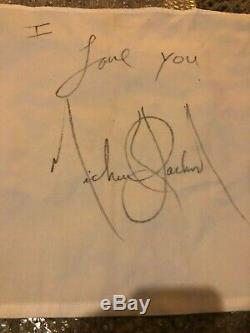 I
Love you
Michael Jackson
ebay